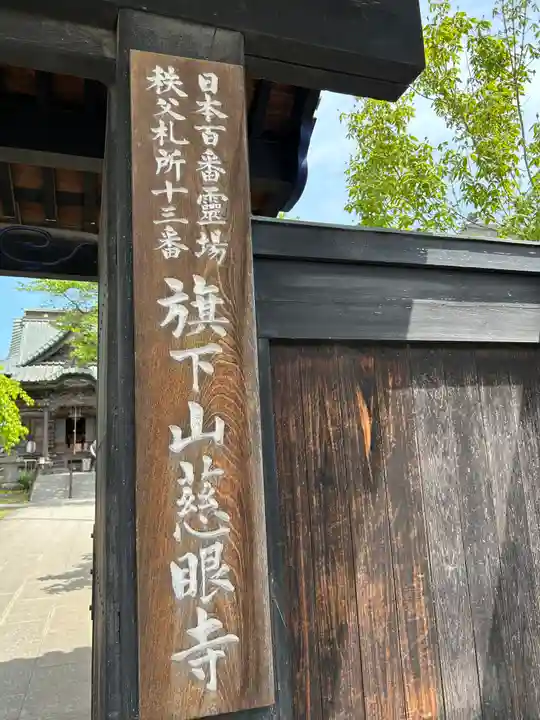 日本百番靈場
秩父札所十三番
旗下山慈眼寺